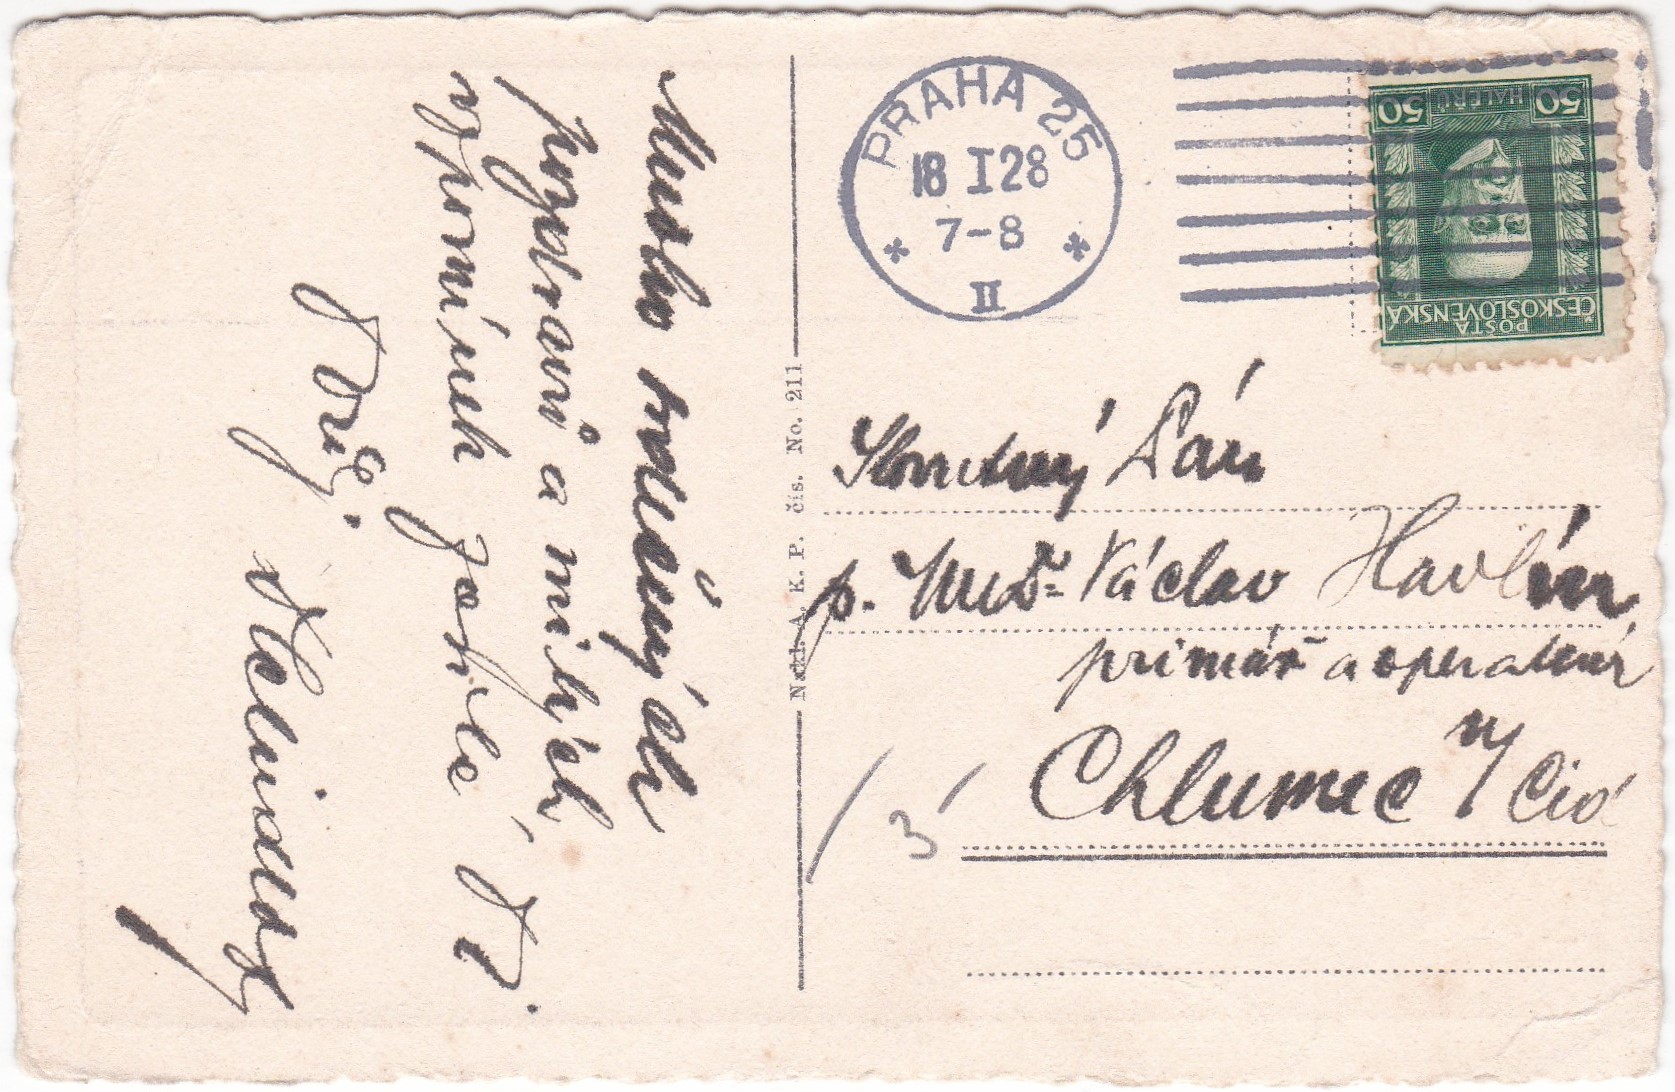 Mnoho srdečných
pozdravů a milých
vzpomínek
PRAHA 25
18 I 28
7-8
II
50 HALÉŘŮ 50
POŠTA
ČESKOSLOVENSKÁ
Nakl. A. K. P. čís. No. 211
Slovutný Pán
p. MUDr Václav Havlín
primář a operatér
Chlumec n/Cid
3